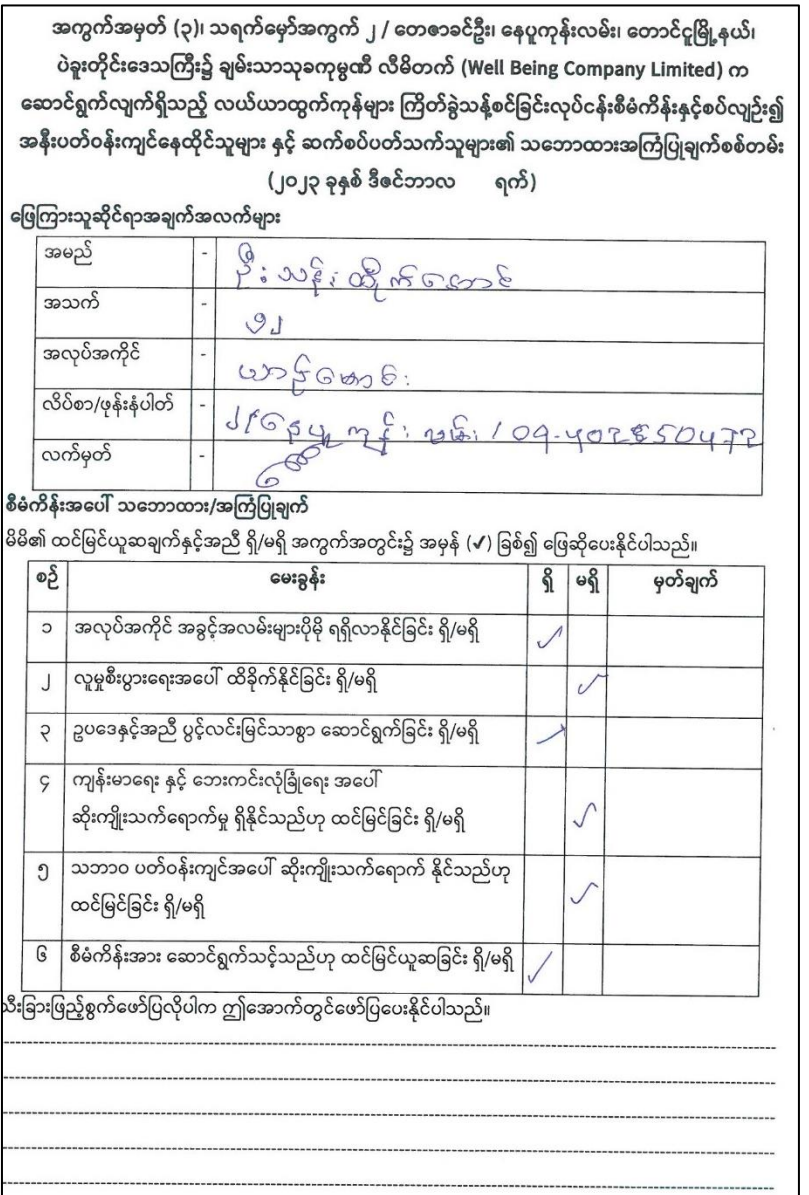 အကွက်အမှတ် (၃)၊ သရက်မှော်အကွက် ၂ / တေဇာခင်ဦး၊ နေပူကုန်းလမ်း၊ တောင်ငူမြို့နယ်၊
ပဲခူးတိုင်းဒေသကြီး၌ ချမ်းသာသုခကုမ္ပဏီ လီမိတက် (Well Being Company Limited) က
ဆောင်ရွက်လျက်ရှိသည့် လယ်ယာထွက်ကုန်များ ကြိတ်ခွဲသန့်စင်ခြင်းလုပ်ငန်းစီမံကိန်းနှင့်စပ်လျဉ်း၍
အနီးပတ်ဝန်းကျင်နေထိုင်သူများ နှင့် ဆက်စပ်ပတ်သက်သူများ၏ သဘောထားအကြံပြုချက်စစ်တမ်း
(၂၀၂၃ ခုနှစ် ဒီဇင်ဘာလ ရက်)
ဖြေကြားသူဆိုင်ရာအချက်အလက်များ
အမည် - ဦးသန်းထိုက်အောင်
အသက် - ၅၂
အလုပ်အကိုင် - ယာဉ်မောင်း
လိပ်စာ/ဖုန်းနံပါတ် - နေပူကုန်းလမ်း /
လက်မှတ် -
စီမံကိန်းအပေါ် သဘောထား/အကြံပြုချက်
မိမိ၏ ထင်မြင်ယူဆချက်နှင့်အညီ ရှိ/မရှိ အကွက်အတွင်း၌ အမှန် (✓) ခြစ်၍ ဖြေဆိုပေးနိုင်ပါသည်။
စဉ် မေးခွန်း ရှိ မရှိ မှတ်ချက်
၁ အလုပ်အကိုင် အခွင့်အလမ်းများပိုမို ရရှိလာနိုင်ခြင်း ရှိ/မရှိ ✓
၂ လူမှုစီးပွားရေးအပေါ် ထိခိုက်နိုင်ခြင်း ရှိ/မရှိ ✓
၃ ဥပဒေနှင့်အညီ ပွင့်လင်းမြင်သာစွာ ဆောင်ရွက်ခြင်း ရှိ/မရှိ ✓
၄ ကျန်းမာရေး နှင့် ဘေးကင်းလုံခြုံရေး အပေါ်
ဆိုးကျိုးသက်ရောက်မှု ရှိနိုင်သည်ဟု ထင်မြင်ခြင်း ရှိ/မရှိ ✓
၅ သဘာဝ ပတ်ဝန်းကျင်အပေါ် ဆိုးကျိုးသက်ရောက် နိုင်သည်ဟု
ထင်မြင်ခြင်း ရှိ/မရှိ ✓
၆ စီမံကိန်းအား ဆောင်ရွက်သင့်သည်ဟု ထင်မြင်ယူဆခြင်း ရှိ/မရှိ ✓
သီးခြားဖြည့်စွက်ဖော်ပြလိုပါက ဤအောက်တွင်ဖော်ပြပေးနိုင်ပါသည်။